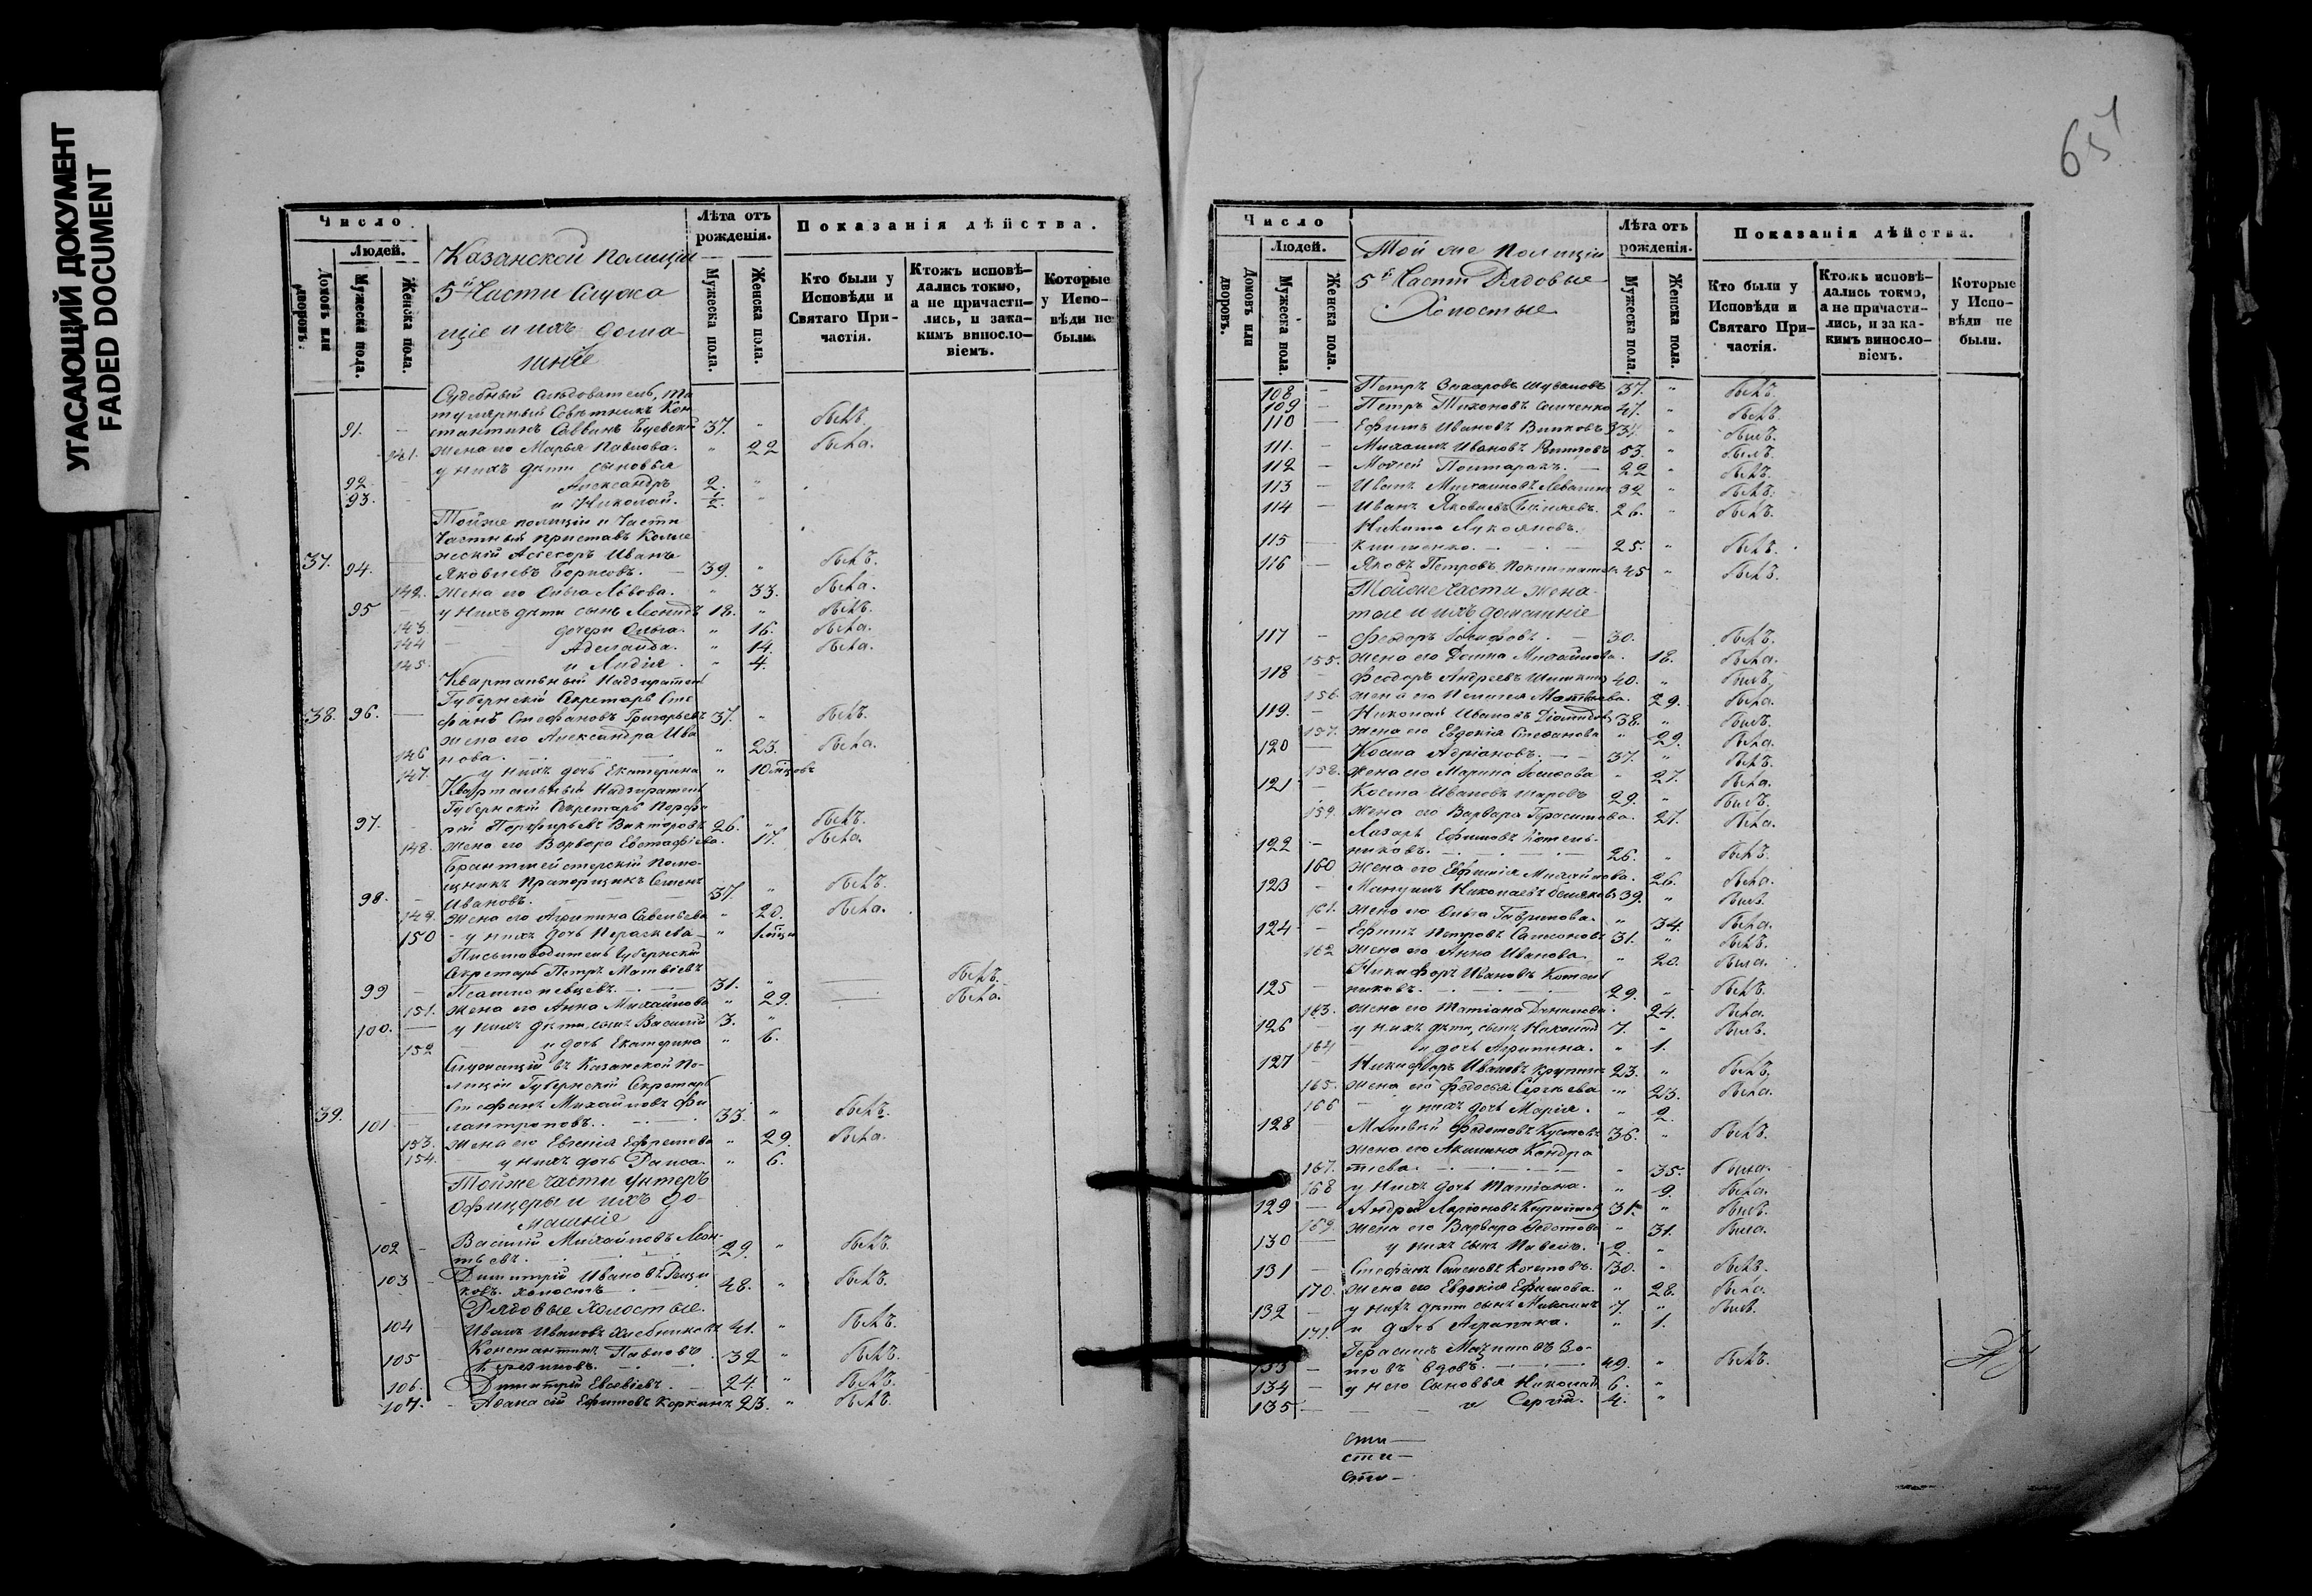 УГАСАЮЩИЙ ДОКУМЕНТ
FADED DOCUMENT
Число.
Людей.
Домовъ или дворовъ.
Мужеска пола.
Женска пола.
Казанской полиціи
5й Части Служа
щіе и ихъ дома
шніе
Лѣта отъ рожденія.
Мужеска пола.
Женска пола.
Показанія дѣйства.
Кто были у Исповѣди и Святаго Причастія.
Ктожъ исповѣдались токмо, а не причастились, и закакимъ винословіемъ.
Которые у Исповѣди не были.
Судебный слѣдователь, ти
тулярный Совѣтникъ Кон
91. стантинъ Саввинъ 37. " былъ.
141. жена его Марья Павлова. " 22 была.
у нихъ дѣти сыновья
92 Александръ 2. "
93. и Николай. ½. "
Тойже полиціи и Части
Частный приставъ Колле
жскій Ассесоръ Иванъ
37. 94. Яковлевъ Борисовъ. 39. " былъ.
142. жена его Ольга Львова. " 33. была.
95 у нихъ дѣти сынъ Леонидъ 18. " былъ.
143 дочери Ольга. " 16. была.
144 Аделаида. " 14. была.
145. и Лидія. " 4.
Квартальный Надзиратель
Губернскій Секретарь Сте
38. 96. фанъ Стефановъ Григорьевъ 37. " былъ.
жена его Александра Ива
146 нова. " 23. была.
147. у нихъ дочь Екатерина " 10 мцовъ
Квартальный Надзиратель
Губернскій Секретарь Порфи
97. рій Порфирьевъ Викторовъ 26. " былъ.
148. жена его Варвара Евстафіева. 17. была.
Брантмейстерскій помо
щникъ Прапорщикъ Семенъ
98. Ивановъ. 37. " былъ.
149. жена его Агрипина Савельева " 20. была.
150 у нихъ дочь Параскева "
Письмоводитель Губернскій
Секретарь Петръ Матвѣевъ
99 31. " былъ.
151. жена его Анна Михайлова " 29. была.
100. у нихъ дѣти, сынъ Василій 3. "
152 и дочь Екатерина " 6.
Служащій въ Казанской По-
лиціи Губернскій Секретарь
Стефанъ Михайловъ Фи
39. 101 лантроповъ. 33. " былъ.
153. жена его Евгенія Ефремова " 29. была.
154. у нихъ дочь Раиса. " 6.
Тойже части Унтеръ
офицеры и ихъ до-
машніе
Василій Михайловъ Леон-
102 тьевъ. 29. " былъ.
Димитрій Ивановъ
103 холостъ 48. " былъ.
Рядовые холостые.
104 Иванъ Ивановъ Хлебниковъ 41. " былъ.
Константинъ Павловъ
105 32 " былъ.
106. Димитрій Евсевіевъ. 24. " былъ.
107. Афанасій Ефимовъ Коркинъ 23. " былъ.
Число
Людей.
Домовъ или дворовъ.
Мужеска пола.
Женска пола.
Той же полиціи
5й Части Рядовые
Холостые
Лѣта отъ рожденія.
Мужеска пола.
Женска пола.
Показанія дѣйства.
Кто были у Исповѣди и Святаго Причастія.
Ктожъ исповѣдались токмо, а не причастились, и за какимъ винословіемъ.
Которые у Исповѣди не были.
108 Петръ 37. " былъ.
109 Петръ Тихоновъ 47. " былъ.
110 Ефимъ Ивановъ " былъ.
111. Михаилъ Ивановъ 53. " былъ.
112 22 " былъ.
113 Иванъ Михайловъ 32 " былъ.
114 Иванъ Яковлевъ 26. " былъ.
Никита Лукояновъ
115 25. " былъ.
116 Яковъ Петровъ 45 " былъ.
Тойже части жена-
тые и ихъ домашніе
117 Феодоръ Іосифовъ. 30. былъ.
155. жена его Домна Михайлова. 18. была.
118 Феодоръ Андреевъ Шишкинъ 40. " былъ.
156. жена его Пелагея Матвѣева. 29. была.
119. Николай Ивановъ 38. " былъ.
157. жена его Евдокія Стефанова " 29. была.
120 Косма Адріановъ. 37. " былъ.
158. жена его Марина Іосифова " 27. была.
121 Косма Ивановъ Шаровъ 29. " былъ.
159. жена его Варвара Герасимова. 27. была.
Лазарь Ефимовъ Котель-
122 никовъ. 26. " былъ.
160 жена его Евфимія Михайлова. 26. была.
123 Мануилъ Николаевъ 39. " былъ.
161. жена его Ольга Гаврилова. " 34. была.
124 Ефимъ Петровъ Самсоновъ 31. " былъ.
162 жена его Анна Иванова. " 20. была.
Никифоръ Ивановъ Котель
125 никовъ. 29. " былъ.
163. жена его Татіана Данилова. 24. была.
126 у нихъ дѣти, сынъ Николай 7. " былъ.
164 и дочь Агрипина. " 1.
127 Никифоръ Ивановъ 23. " былъ.
165. жена его Федосья Сергѣева " 23. была.
166 у нихъ дочь Марія. " 2.
128 Матвѣй Федотовъ 36. " былъ.
жена его Акилина Кондра
167. тіева. " 35. была.
168 у нихъ дочь Татіана. " 9. была.
129 Андрей Ларіоновъ 31. " былъ.
169. жена его Варвара Федотова " 31. была.
130 у нихъ сынъ Павелъ. 2. "
131 Стефанъ Семеновъ 30. " былъ.
170. жена его Евдокія Ефимова. " 28. была.
132 у нихъ дѣти сынъ Михаилъ 7. " былъ.
171. и дочь Агрипина. " 1.
Герасимъ
133 вдовъ. 49. " былъ.
134 у него сыновья Николай 6. "
135 и Сергій. 4. "